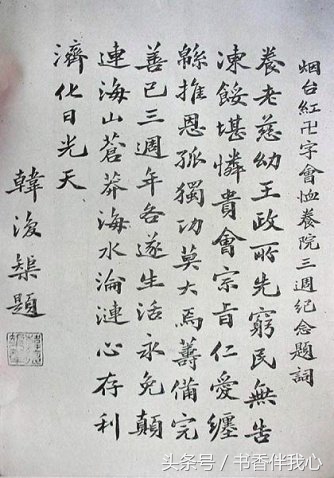 烟台紅卍字會恤養院三週紀念題詞
養老慈幼王政所先窮民無告
凍餒堪憐貴會宗旨仁愛纏
緜推恩孤獨功莫大焉善備完
善已三週年各遂生活永免顛
連海山蒼莽海水淪漣心存利
濟化日光天
韓復榘題
头条号 / 书香伴我心